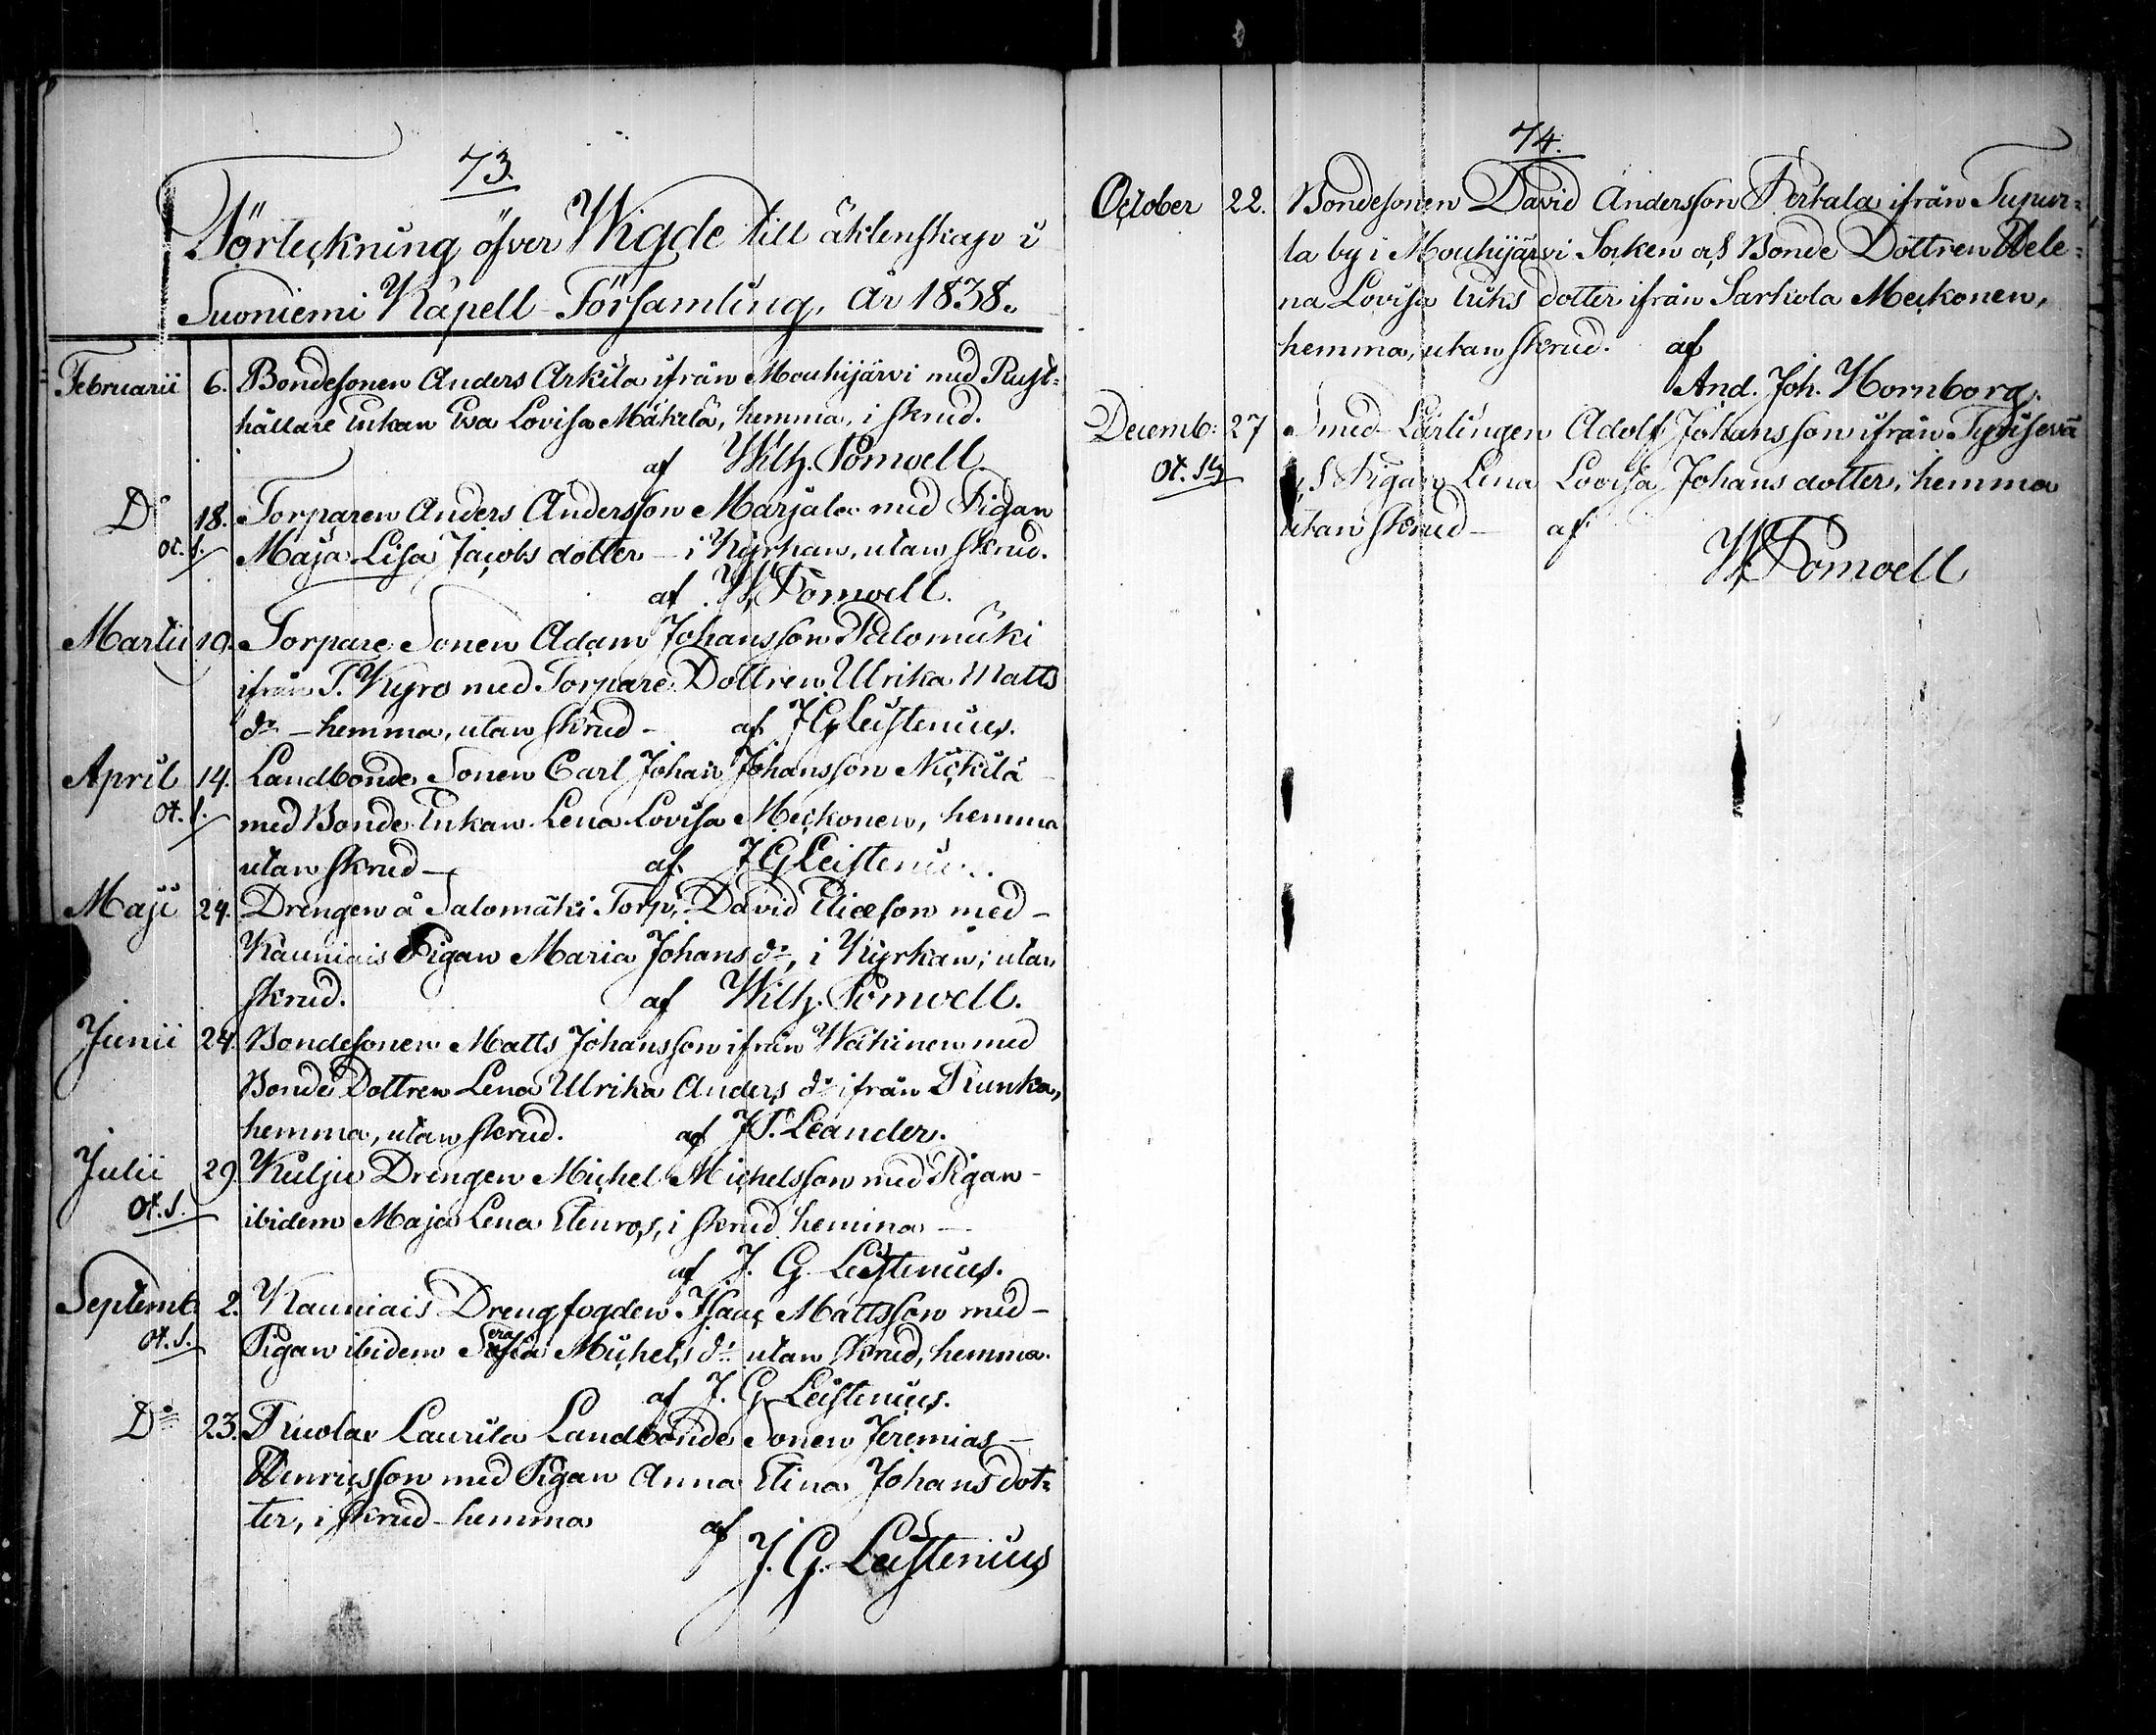 73.
Förteckning öfver Wigde till äktenskap i
Suoniemi Kapell-Församling, år 1838.
Februarii 6. Bondesonen Anders Arkila ifrån Mouhijärvi med Rust=
hållare Enkan Eva Lovisa Mäkelä, hemma, i skrud.
af Wilh. Pomoell
Do 18. Torparen Anders Andersson Marjala med Pigan
ot. s. Maja Lisa Jacobs dotter — i Kyrkan, utan skrud.
af W. Pomoell.
Martii 19. Torpare Sonen Adam Johansson Palomäki
ifrån T. Kyro med Torpare Dottren Ulrika Matts
dr — hemma, utan skrud — af J G Leistenius.
April 14. Landbonde Sonen Carl Johan Johansson Nickilä
ot. s. med Bonde Enkan Lena Lovisa Meckonen, hemma
utan skrud — af J G Leisteniu
Maji 24. Drengen å Salomäki Torp, David Eliæson med —
Kauniais Pigan Maria Johans dr, i Kyrkan, utan
skrud. af Wilh. Pomoell.
Junii 24. Bondesonen Matts Johansson ifrån Wäkinen med
Bonde Dottren Lena Ulrika Anders dr ifrån Punka,
hemma, utan skrud. af J S. Leander.
Julii 29 Kulju Drengen Michel Michelsson med Pigan —
ot. s. ibidem Maja Lena Stenros, i skrud hemma —
af J. G. Leistenius.
Septemb. 2. Kauniais Drengfogden Isaac Mattsson med —
ot. s. Pigan ibidem Michels dr utan skrud, hemma.
af J. G. Leistenius.
Do 23. Laurila Landbonde Sonen Jeremias —
Henricsson med Pigan Anna Stina Johans dot=
ter, i skrud — hemma af
J. G. Leistenius
74.
October 22. Bondesonen David Andersson Pertala ifrån Tupur=
la by i Mouhijärvi Socken och Bonde Dottren Hele=
na Lovisa Eriks dotter ifrån Sarkola Meckonen,
hemma, utan skrud. af
And. Joh. Hornborg.
Decemb: 27 Smed-Lärlingen Adolf Johansson ifrån
ot. Pigan Lena Lovisa Johans dotter, hemma
utan skrud — af
W. Pomoell